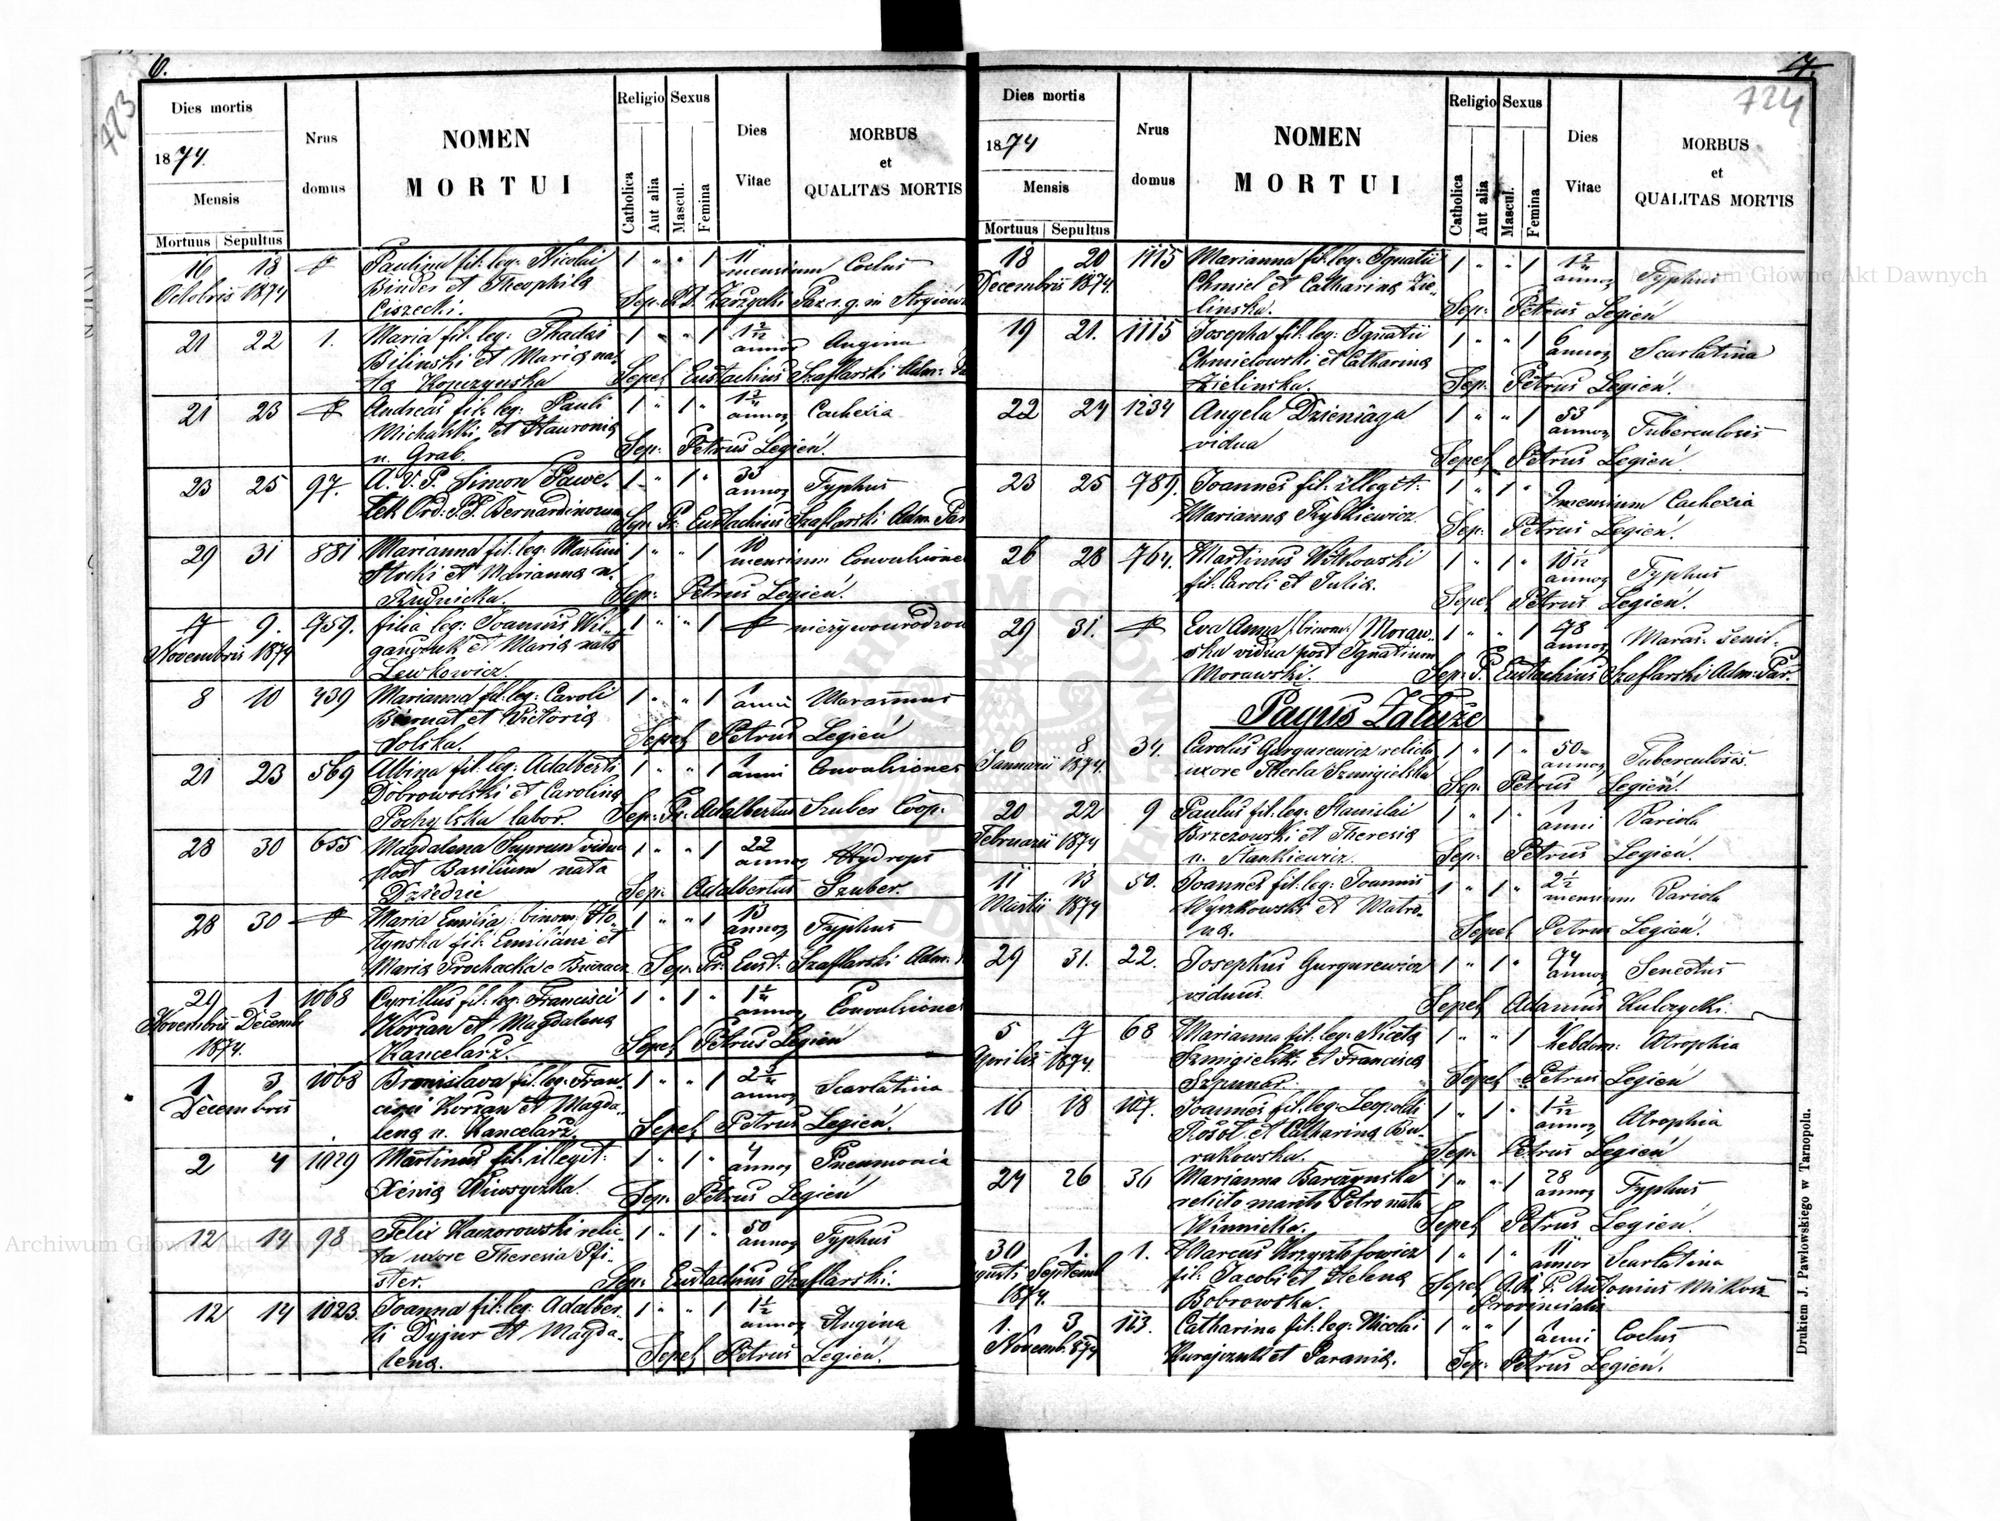 6.
723
Dies mortis
1874.
Mensis
Mortuus Sepultus
Nrus domus
NOMEN MORTUI
Religio
Catholica
Aut alia
Sexus
Mascul.
Femina
Dies Vitae
MORBUS et QUALITAS MORTIS
16 18 Paulina fil: leg: Nicolai 1 " " 1 11
Octobris 1874 Binder et Theophila mensium Coclus
Ciszecki.
21 22 1. Maria fil: leg: Thadei 1 " " 1 1 2/12
Bilinski et Maria na- annor Angina
ta Kopczynska Sepel Eustachius Szaflarski Adm:
21 23 Andreas fil: leg: Pauli 1 " 1 "
Michalski et Hauronia annor Cachexia
n. Grab. Sep: Petrus Legień.
23 25 97. A. V. P. Simon Pawe- 1 " 1 " 33
łek Ord: PP. Bernardinorum annor Typhus
Sep: Pr. Eustachius Szaflarski Adm. Par
29 31 881 Marianna fil: leg: Martini 1 " " 1 10
et Marianna n. mensium Convulsiones
Rudnicka. Sep: Petrus Legień.
7 9. 759. filia leg: Joannis Wil- 1 " " 1 nieżywourodzona
Novembris 1874 et Maria nata
Lewkowicz.
8 10 439 Marianna fil: leg: Caroli 1 " " 1 1
Biernat et Victoria anni Marasmus
Solska. Sepel Petrus Legień
21 23 569 Albina fil: leg: Adalberti 1 " " 1 1
Dobrowolski et Carolina anni Convulsiones
labor. Sep: Pr. Adalbertus Szuber Coop.
28 30 655 Magdalena Suprun vidua 1 " " 1 22
post Basilium nata annor Hydrops
Dziedzic Sep: Adalbertus Szuber.
28 30 Maria Emilia binom: 1 " " 1 13
fil: Emiliani et annor Typhus
Maria Prochacka e Buczacz Sep: Pr. Eust. Szaflarski Adm.
29 1 1068 Cyrillus fil: leg: Francisci 1 " 1 "
Novembris Decemb Korzan et Magdalena annor Convulsiones
1874. Kancelarz. Sepel Petrus Legień
1 3 1068 Bronislava fil: leg: Fran- 1 " " 1
Decembris cisci Korzan et Magda- annor Scarlatina
lena n. Kancelarz Sepel Petrus Legień.
2 4 1029 Martinus fil: illegit: 1 " 1 " 4
Xenia annor Pneumonia
Sep: Petrus Legień
12 14 98 Felix Kaczorowski relic- 1 " 1 " 50
ta uxore Theresia Pfi- annor Typhus
ster. Sep: Eustachius Szaflarski.
12 14 1023. Joanna fil: leg: Adalber- 1 " " 1 1 1/2
ti Dyjur et Magda- annor Angina
lena. Sepel Petrus Legień.
7.
724
Dies mortis
1874
Mensis
Mortuus Sepultus
Nrus domus
NOMEN MORTUI
Religio
Catholica
Aut alia
Sexus
Mascul.
Femina
Dies Vitae
MORBUS et QUALITAS MORTIS
18 20 1115 Marianna fil: leg: Ignatii 1 " " 1
Decembris 1874. Chmiel et Catharina Zie- annor Typhus
linska. Sep: Petrus Legień
19 21. 1115 Josepha fil: leg: Ignatii 1 " " 1 6
Chmielowski et Catharina annor Scarlatina
Zielinska. Sep: Petrus Legień.
22 24 1234 Angela Dzieniaga 1 " " 1 53
vidua annor Tuberculosis
Sepel Petrus Legień.
23 25 789. Joannes fil: illegit: 1 " 1 " 9
Marianna Rybkiewicz. mensium Cachexia
Sep: Petrus Legień.
26 28 764. Martinus Witkowski 1 " 1 "
fil: Caroli et Julia. annor Typhus
Sepel Petrus Legień.
29 31. Eva Anna /:binom:/ Moraw- 1 " " 1 78
ska vidua post Ignatium annor Maras. senil-
Morawski. Sep: P. Eustachius Szaflarski Adm: Par.
Pagus Załuże
6 8 34. Carolus Gurgurewicz relicta 1 " 1 " 50
Januarii 1874. uxore Thecla Szmigielska annor Tuberculosis.
Sep: Petrus Legień.
20 22 9 Paulus fil: leg: Stanislai 1 " 1 " 1
Februarii 1874 Brzezowski et Theresia anni Variola
n. Stankiewicz. Sep: Petrus Legień.
11 13 50. Joannes fil: leg: Joannis 1 " 1 " 2 1/2
Martii 1874 Wyszkowski et Matro- mensium Variola
na. Sepel Petrus Legień.
29 31. 22. Josephus Gurgurewicz 1 " 1 " 74
viduus. annor Senectus
Sepel Adamus Kulczycki.
5 7 68 Marianna fil: leg: Niceta 1 " " 1 1
Aprilis 1874. Szmigielski et Francisca hebdom: Atrophia
Szpunar. Sepel Petrus Legień
16 18 107. Joannes fil: leg: Leopoldi 1 " 1 " 1 2/12
Rosół et Catharina Bu- annor Atrophia
rakowska. Sep: Petrus Legień
24 26 36 Marianna Barczynska 1 " " 1 28
relicto marito Petro nata annor Typhus
Winnicka. Sepel Petrus Legień.
30 1. 1. Marcus Krzysztofowicz 1 " 1 " 11
gusti Septemb fil: Jacobi et Helena annor Scarlatina
1874. Bobrowska. Sepel A. R. P. Antonius
Provincialis
1. 3. 113. Catharina fil: leg: Nicolai 1 " " 1 1
Novemb. 874 et Parania. anni Coclus
Sep: Petrus Legień.
Drukiem J. Pawłowskiego w Tarnopolu.
Archiwum Główne Akt Dawnych
Archiwum Główne Akt Dawnych